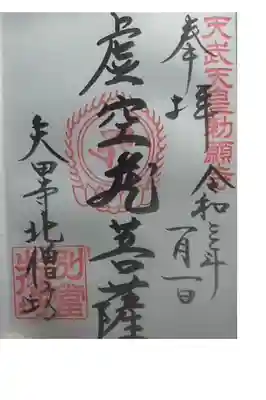 天武天皇勅願
奉拝 令和三年
一月一日
虚空蔵菩薩
矢田寺北僧坊